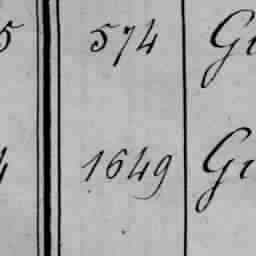 5 574 G
4 1649 G